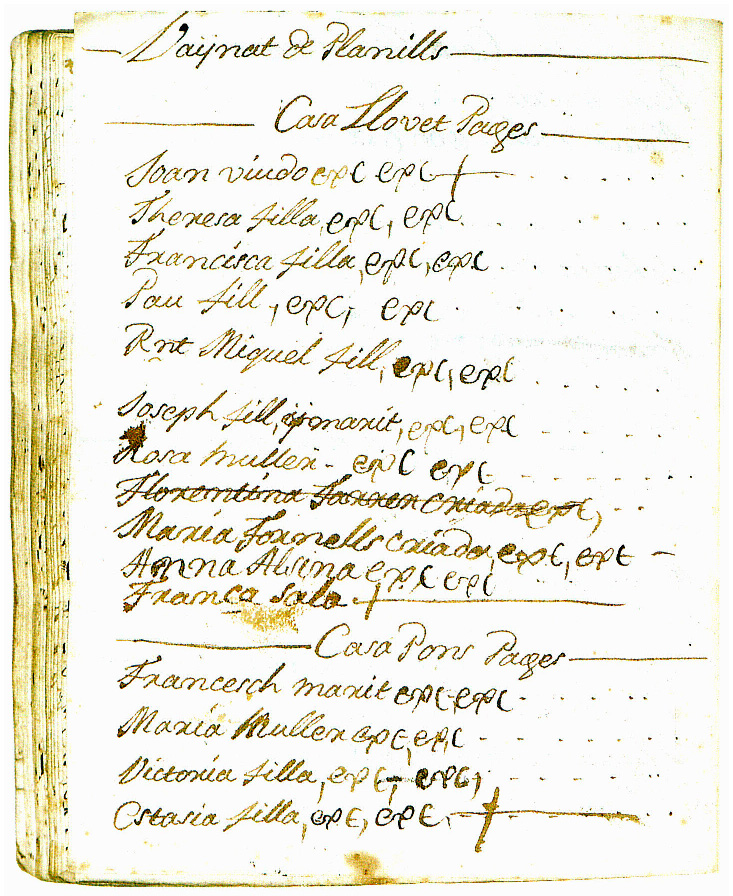 Vaÿnat de Planills
Casa Llovet Pages
Joan viudo epC epC †
Theresa filla, epC, epC
Francisca filla, epC, epC
Pau fill, epC, epC
Rnt Miquel fill, epC, epC
Joseph fill, ÿ marit, epC, epC
Rosa muller - epC epC
Florentina Farrer criada epC,
Maria Fornells criada, epC, epC
Anna Alsina epC epC
Franca Sala †
Casa Pons Pages
Francesch marit epC epC
Maria Muller epC, epC
Victoria filla, epC, epC,
Estasia filla, epC, epC, †